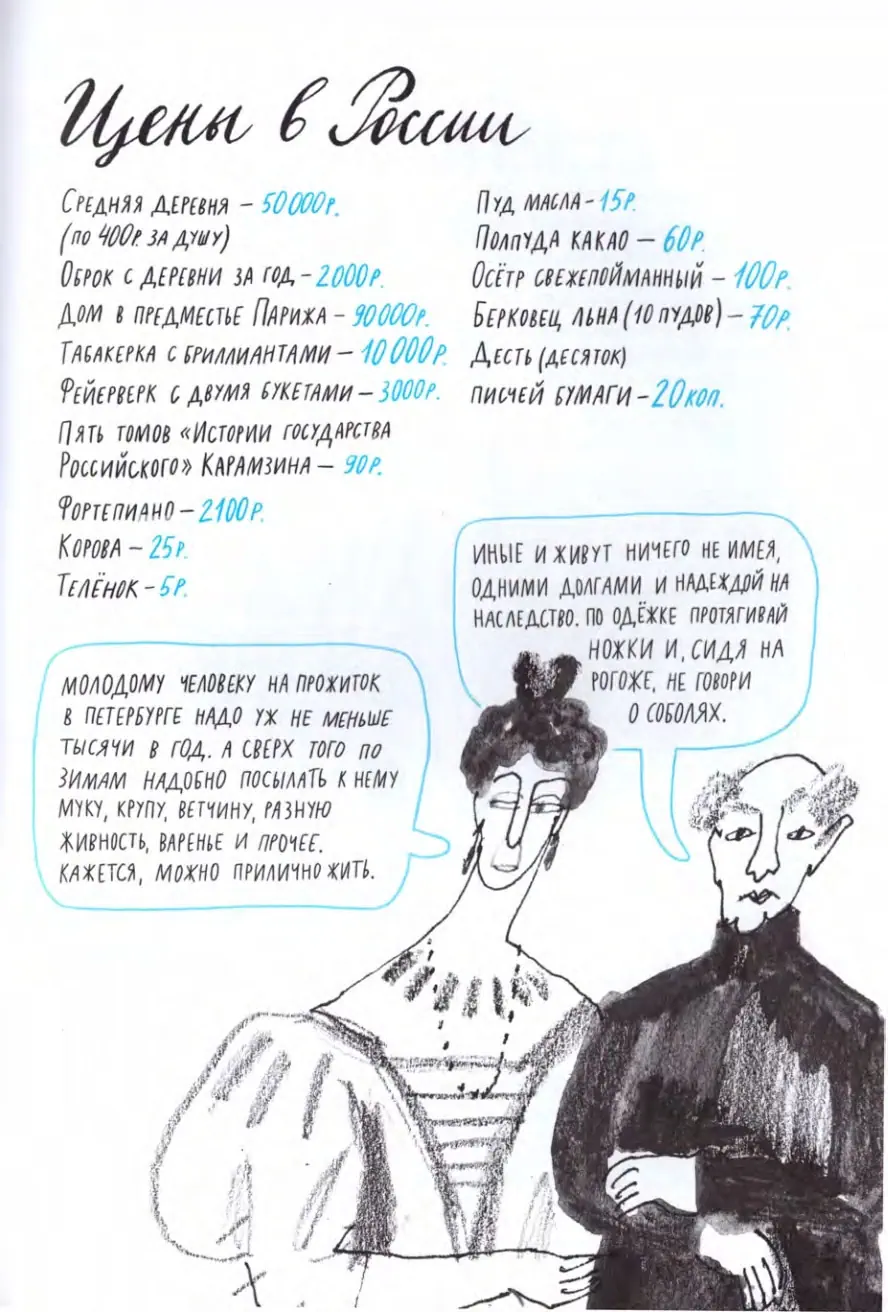 Цены в России
Средняя деревня – 50000р.
(по 400р. за душу)
Оброк с деревни за год – 2000р.
Дом в предместье Парижа – 90000р.
Табакерка с бриллиантами – 10000р.
Фейерверк с двумя букетами – 3000р.
Пять томов «Истории государства
Российского» Карамзина – 90р.
Фортепиано – 2100р.
Корова – 25р.
Телёнок – 5р.
Пуд масла – 15р.
Полпуда какао – 60р.
Осётр свежепойманный – 100р.
Берковец льна (10 пудов) – 70р.
Десть (десяток)
писчей бумаги – 20коп.
Иные и живут ничего не имея,
одними долгами и надеждой на
наследство. По одёжке протягивай
ножки и, сидя на
рогоже, не говори
о соболях.
Молодому человеку на прожиток
в Петербурге надо уж не меньше
тысячи в год. А сверх того по
зимам надобно посылать к нему
муку, крупу, ветчину, разную
живность, варенье и прочее.
Кажется, можно прилично жить.